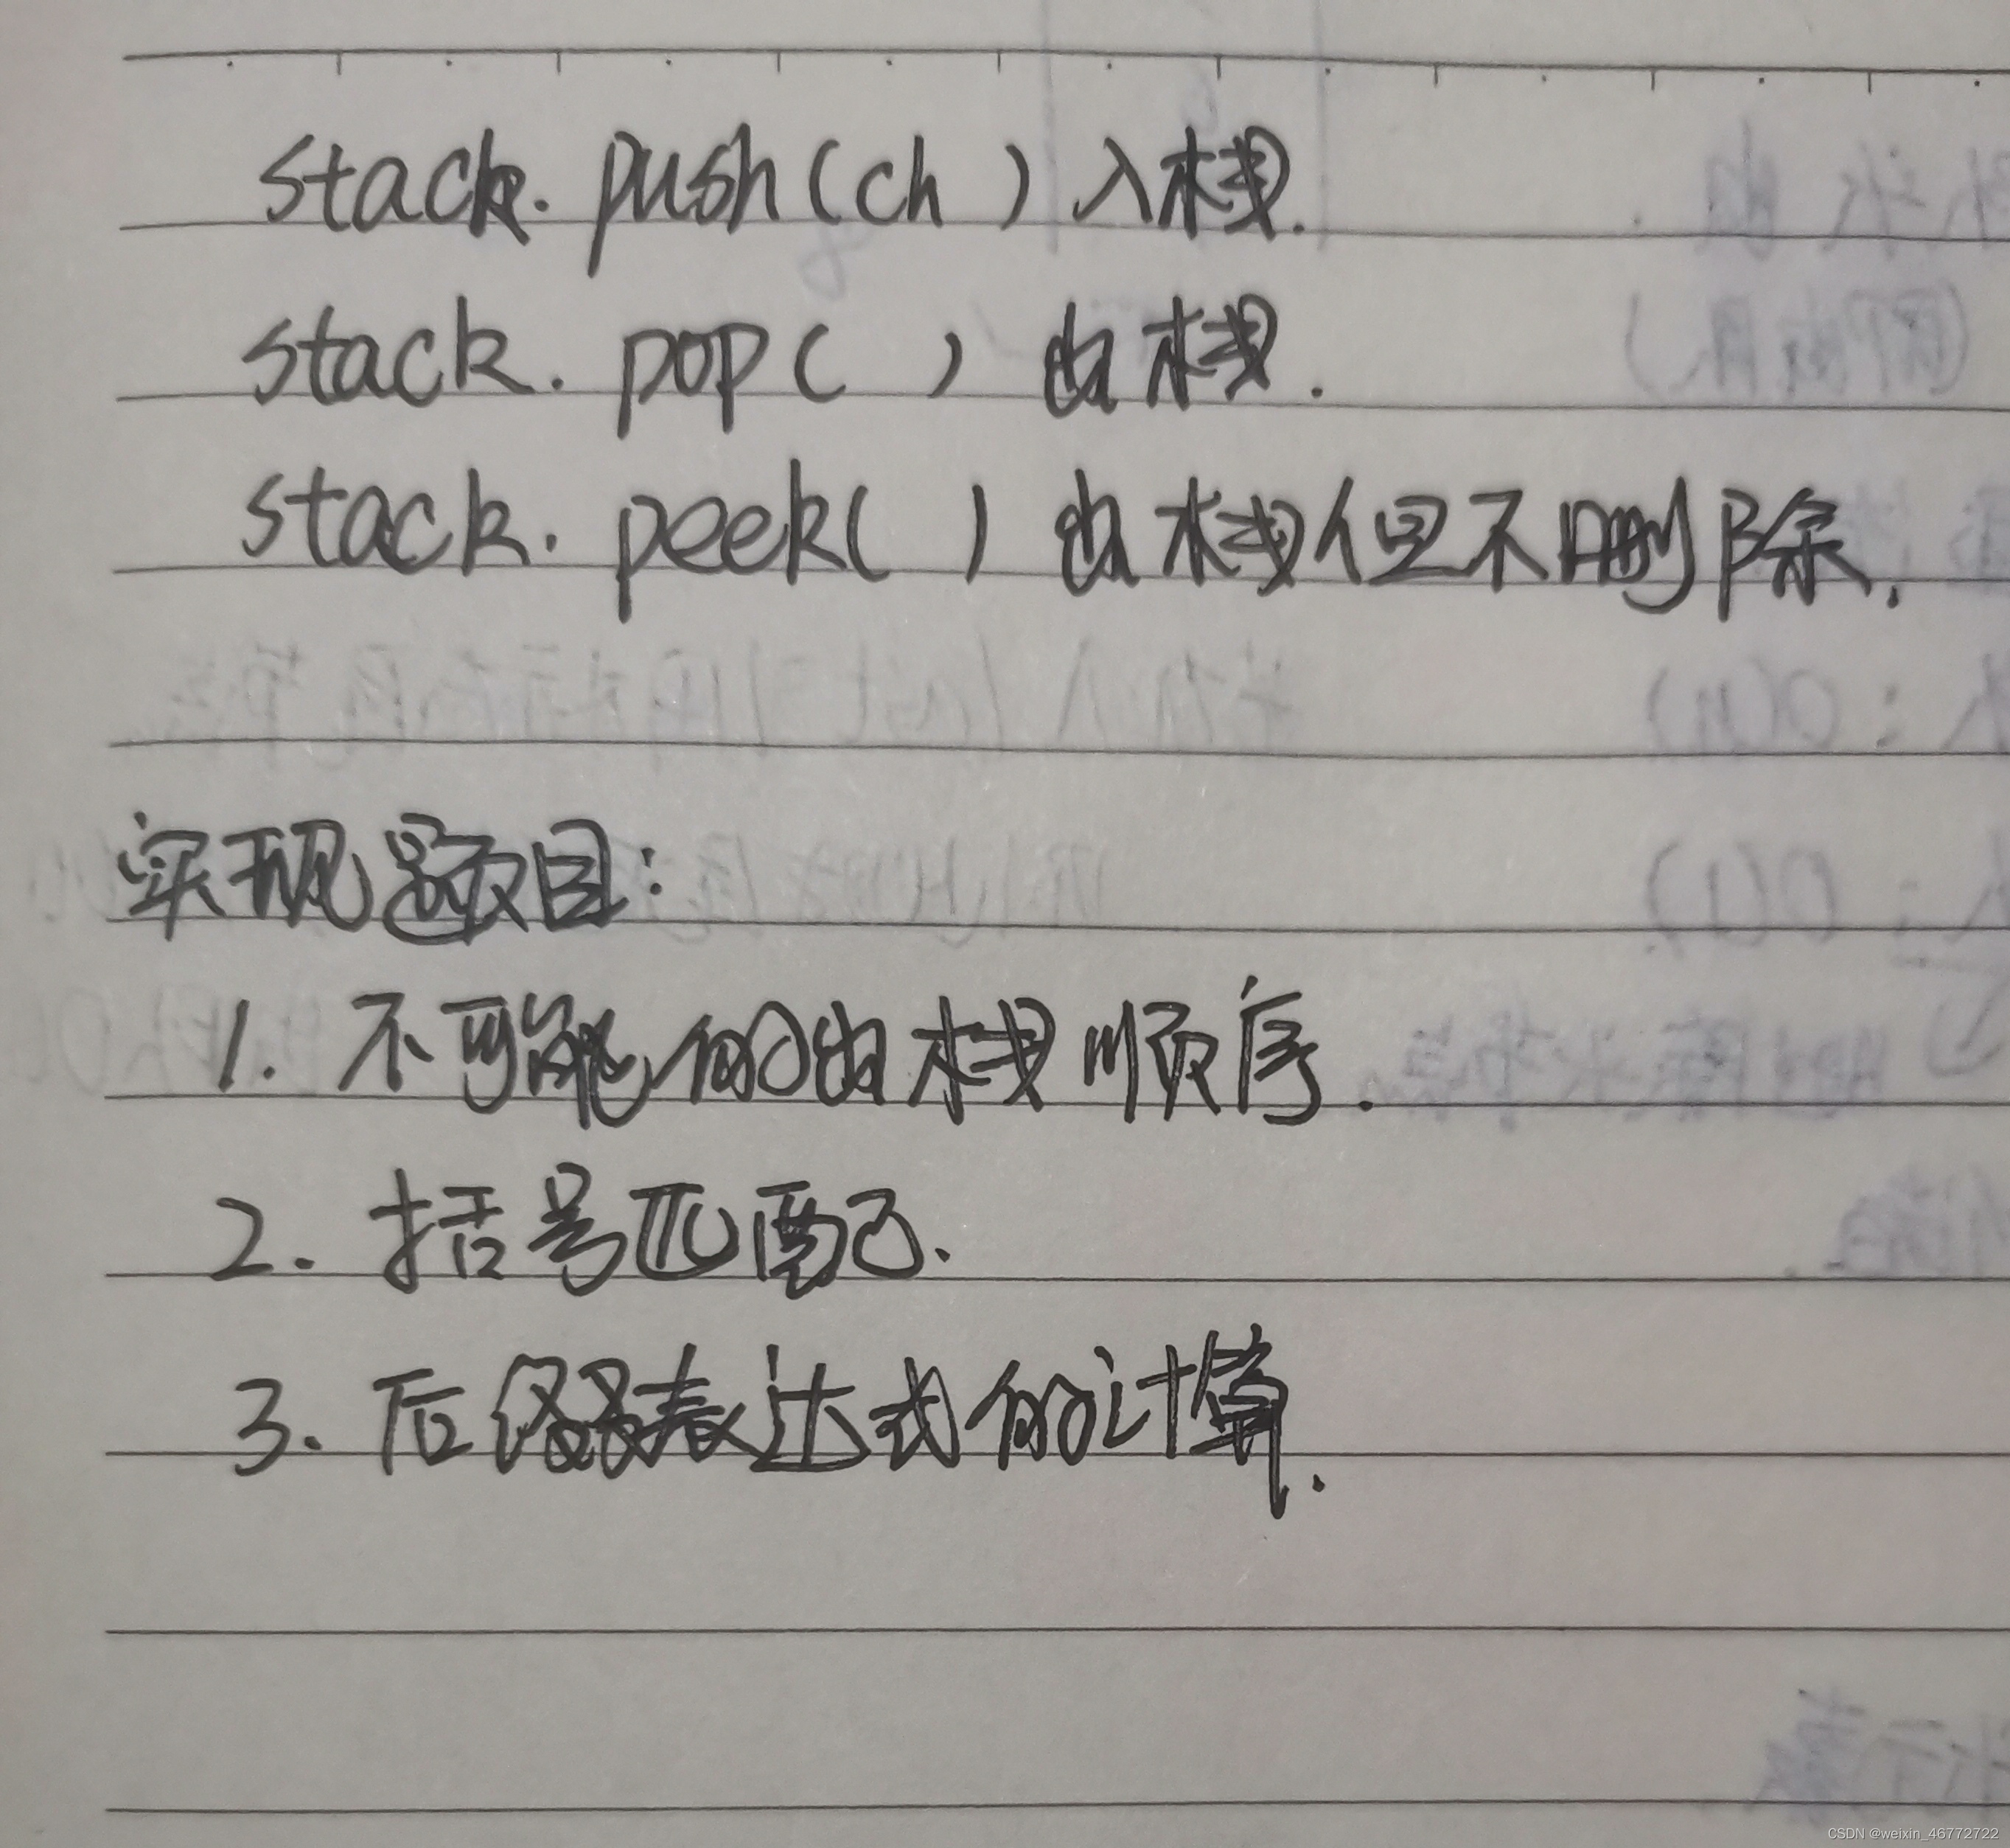 stack. push(ch ) 入栈.
stack. pop( ) 出栈.
stack. peek( ) 出栈但不删除.
实现题目:
1. 不可能的出栈顺序.
2. 括号匹配.
3. 后缀表达式的计算.
CSDN @weixin_46772722